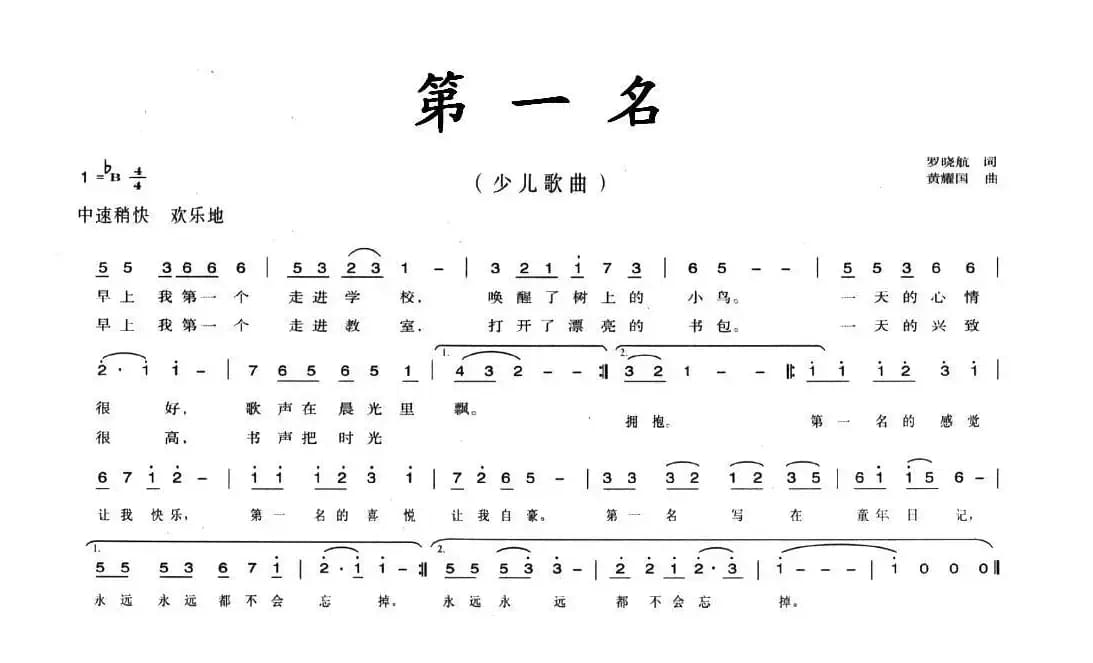 第一名
1=♭B 4/4
（少儿歌曲）
罗晓航 词
黄耀国 曲
中速稍快 欢乐地
5 5 3 6 6 6 6 | 5 3 2 3 1 - | 3 2 1 1 7 3 | 6 5 - - | 5 5 3 6 6 |
早上 我第一个 走进学校， 唤醒了树上的 小鸟。 一天的心情
早上 我第一个 走进教室， 打开了漂亮的 书包。 一天的兴致
1. 2.
2 · 1 1 - | 7 6 5 6 5 1 | 4 3 2 - - :| 3 2 1 - - |: 1 1 1 2 3 1 |
很 好， 歌声在晨光里 飘。 拥抱。 第一名的感觉
很 高， 书声把时光
6 7 1 2 - | 1 1 1 2 3 1 | 7 2 6 5 - | 3 3 3 2 1 2 3 5 | 6 1 1 5 6 - |
让我快乐， 第一名的喜悦 让我自豪。 第一名 写在 童年日记，
1. 2.
5 5 5 3 6 7 1 | 2 · 1 1 - :| 5 5 5 3 3 - | 2 2 1 2 · 3 | 1 - - - | 1 0 0 0 ‖
永远永远都不会 忘掉。 永远永远 都不会忘 掉。